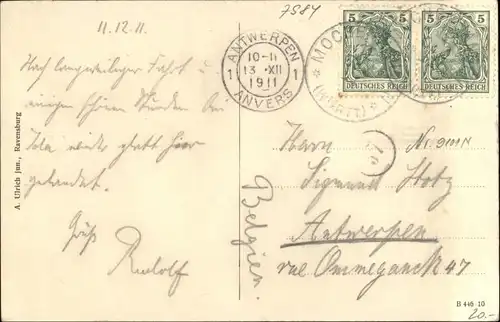 7584
11.12.11.
Nach langweiliger Fahrt u.
einigen schönen Stunden bei
wieder glatt hier
gelandet.
Gruß
Rudolf
ANTWERPEN
1 10-11 1
13 XII
1911
ANVERS
5 5 5 5
DEUTSCHES REICH DEUTSCHES REICH
(WÜRTT)
Herrn
Sigmund Hotz
Antwerpen
rue Ommeganck 47
Belgien.
A. Ulrich jun., Ravensburg
B 446 10
20.-